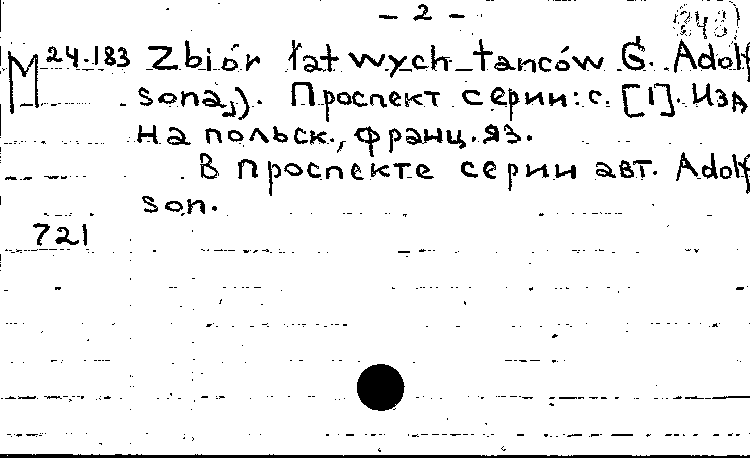 - 2 -
248
M 24.183 Zbiór łatwych tanców G. Adolf
sona„). Проспект серии: с. [1]. Изд
на польск., франц. яз.
В проспекте серии авт. Adolf
son.
721